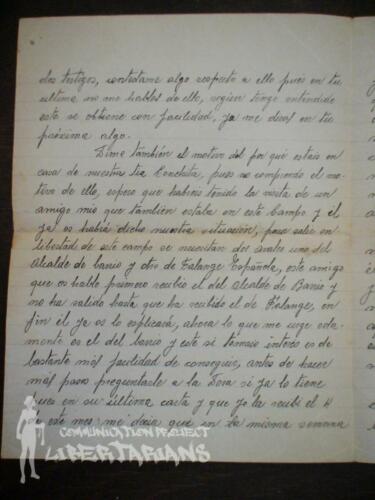 dos testigos, contadame algo respecto a ello pues en tu
ultima no me hablas de ello, segun tengo entendido
este se obtiene con facilidad, ya me diras en tu
proxima algo.
Dime también el motivo del por que estais en
casa de nuestra tia Conchita, pues no comprendo el mo-
tivo de ello, espero que habreis tenido la visita de un
amigo mio que tambien estaba en este Campo y él
ya os habrá dicho nuestra situación, para salir en
libertad de este campo se necesitan dos avales uno del
Alcalde de barrio y otro de Falange Española, este amigo
que os hablo primero recibio el del Alcalde de Barrio y
no ha salido hasta que ha recibido el de Falange, en
fin él ya os lo esplicará, ahora lo que me urge
mente es el del barrio y este si teneis interes es de
bastante más facilidad de conseguir, antes de hacer
más paso preguntarle a la si ya lo tiene
pues en su última carta y que yo la recibi el 4
de este mes, me decia que en la misma semana
COMMUNICATION PROJECT
LIBERTARIANS